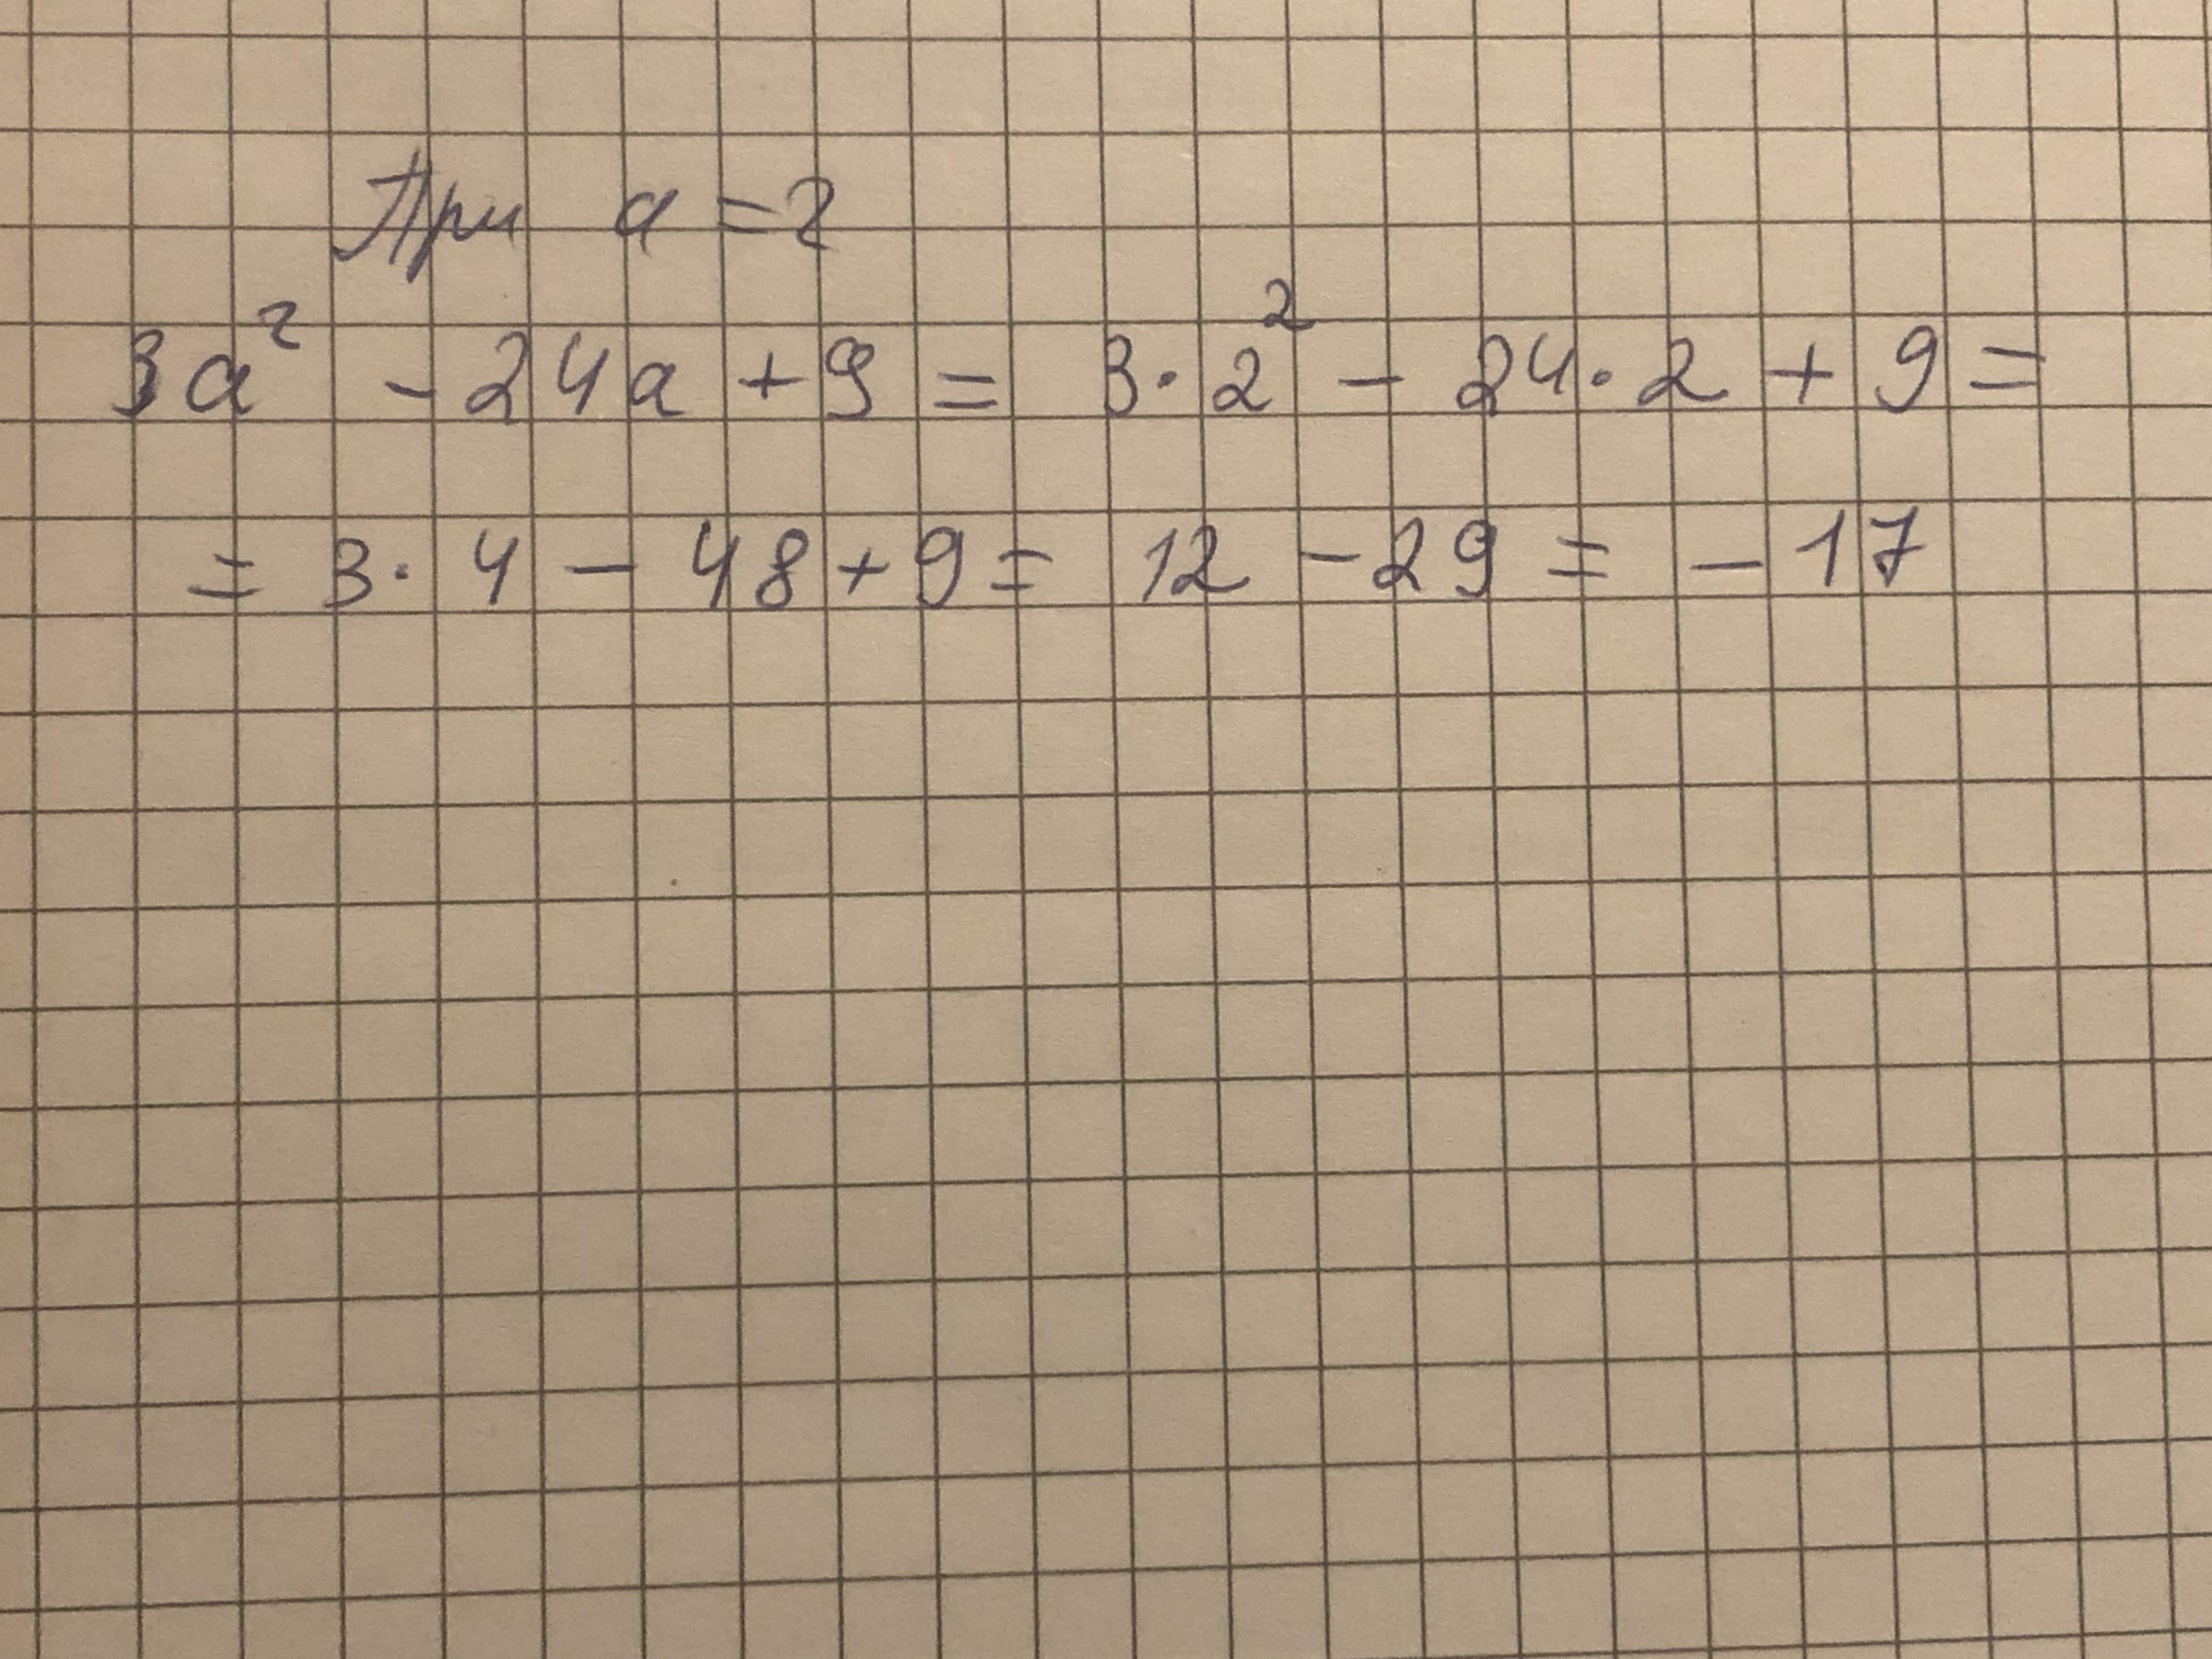 При a = 2
3a² - 24a + 9 = 3 · 2² - 24 · 2 + 9 =
= 3 · 4 - 48 + 9 = 12 - 29 = - 17